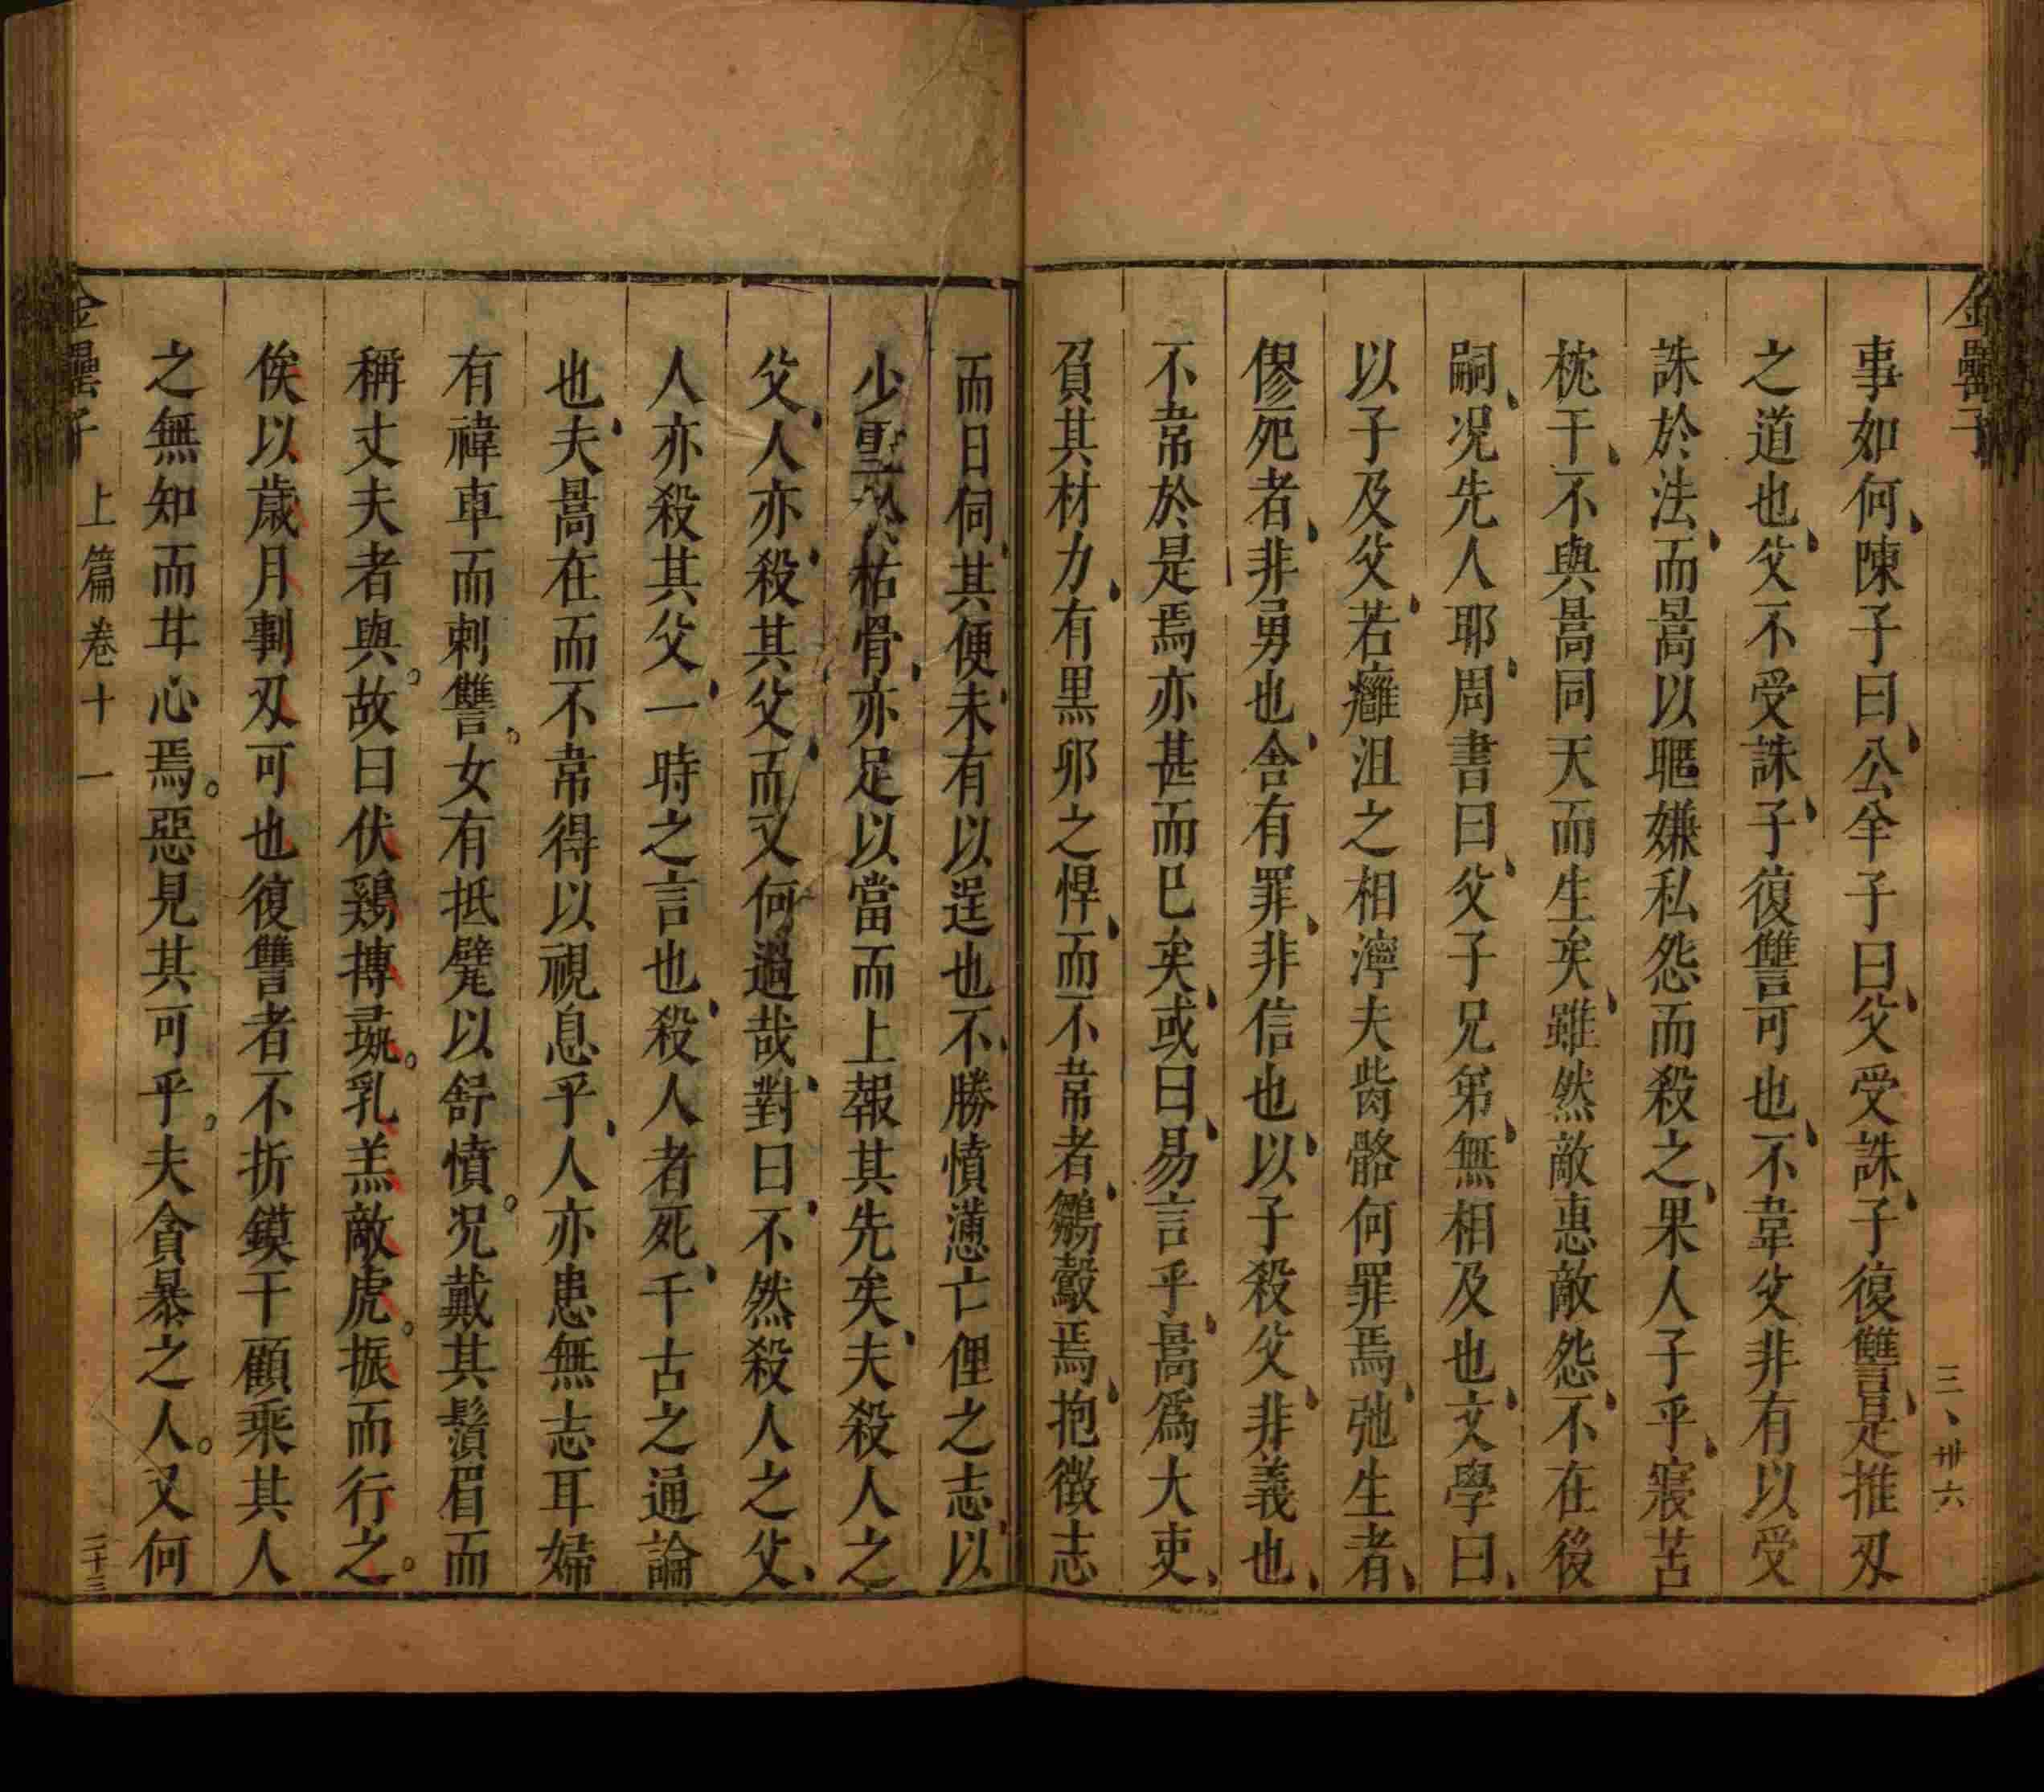 金罍子
三、卅六
事如何陳子曰公羊子曰父受誅子復讐是推刃
之道也父不受誅子復讐可也不韋父非有以受
誅於法而暠以驅嫌私怨而殺之果人子乎寢苫
枕干不與暠同天而生矣雖然敵惠敵怨不在後
嗣况先人耶周書曰父子兄弟無相及也文學曰
以子及父若癰沮之相濘夫胔骼何罪焉弛生者
僇死者非勇也舍有罪非信也以子殺父非義也
不韋於是焉亦甚而已矣或曰易言乎暠爲大吏
負其材力有黒卵之悍而不韋者鶵鷇焉抱徴志
而日伺其便未有以逞也不勝憤懣亡俚之志以
少墅於枯骨亦足以當而上報其先矣夫殺人之
父人亦殺其父而又何過哉對曰不然殺人之父
人亦殺其父一時之言也殺人者死千古之通論
也夫暠在而不韋得以視息乎人亦患無志耳婦
有禕車而刺讐女有抵甓以舒憤况戴其鬚眉而
稱丈夫者與故曰伏鷄搏貍乳羔敵虎振而行之
俟以歲月剚刄可也復讐者不折鏌干顧乘其人
之無知而甘心焉惡見其可乎夫貪暴之人又何
金罍子 上篇卷十一 二十三